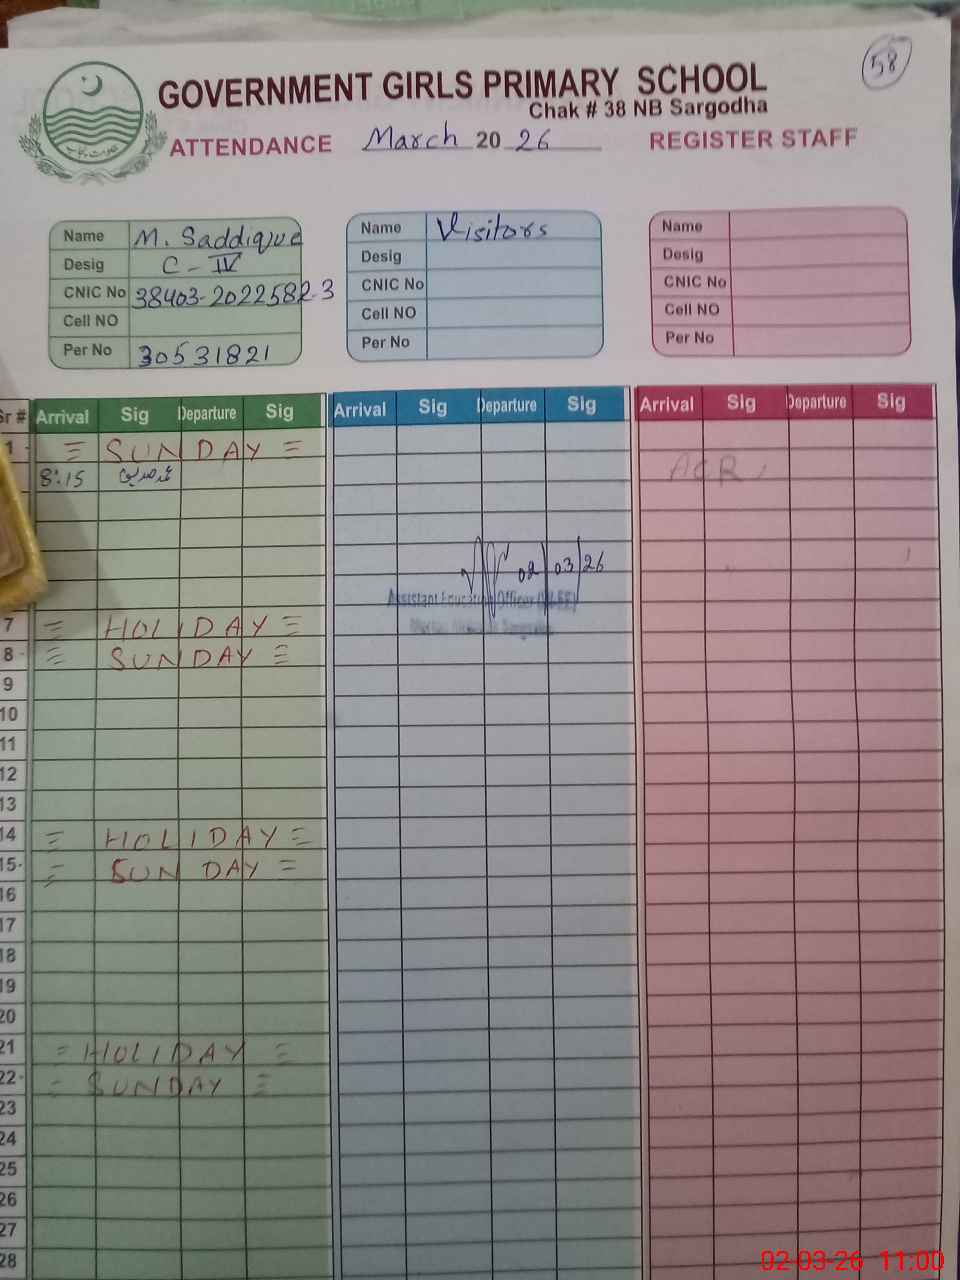 58
GOVERNMENT GIRLS PRIMARY SCHOOL
Chak # 38 NB Sargodha
ATTENDANCE March 20 26 REGISTER STAFF
Name M. Saddique
Desig C - IV
CNIC No 38403-2022582-3
Cell NO
Per No 30531821
Name Visitors
Desig
CNIC No
Cell NO
Per No
Name
Desig
CNIC No
Cell NO
Per No
Sr # Arrival Sig Departure Sig Arrival Sig Departure Sig Arrival Sig Departure Sig
1 = SUNDAY =
8:15 ACR
02/03/26
Assistant Education Officer
7 = HOLIDAY =
8 = SUNDAY =
9
10
11
12
13
14 = HOLIDAY =
15 = SUNDAY =
16
17
18
19
20
21 = HOLIDAY =
22 = SUNDAY =
23
24
25
26
27
28
02-03-26 11:00